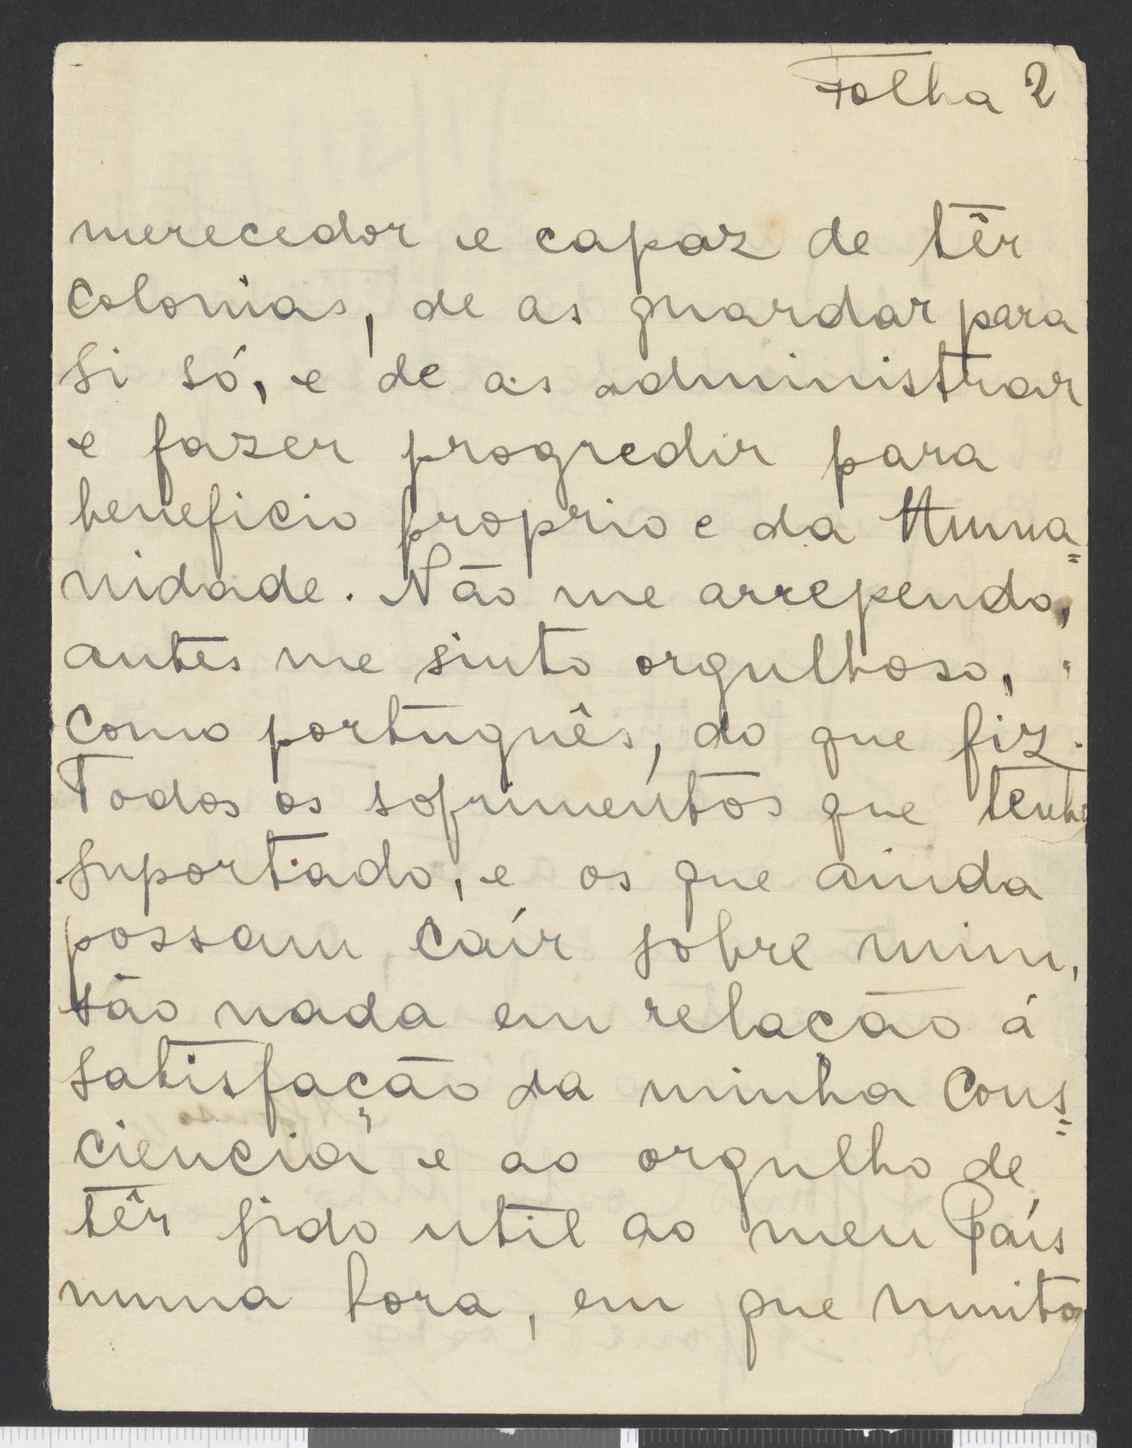 Folha 2
merecedor e capaz de têr
colonias, de as guardar para
si só, e de as administrar
e fazer progredir para
beneficio proprio e da Huma=
nidade. Não me arrependo,
antes me sinto orgulhoso,
como português, do que fiz.
Todos os sofrimentos que tenho
suportado, e os que ainda
possam caír sobre mim,
são nada em relacão á
satisfação da minha Cons=
ciencia e ao orgulho de
têr sido util ao meu País
numa hora, em que muitos